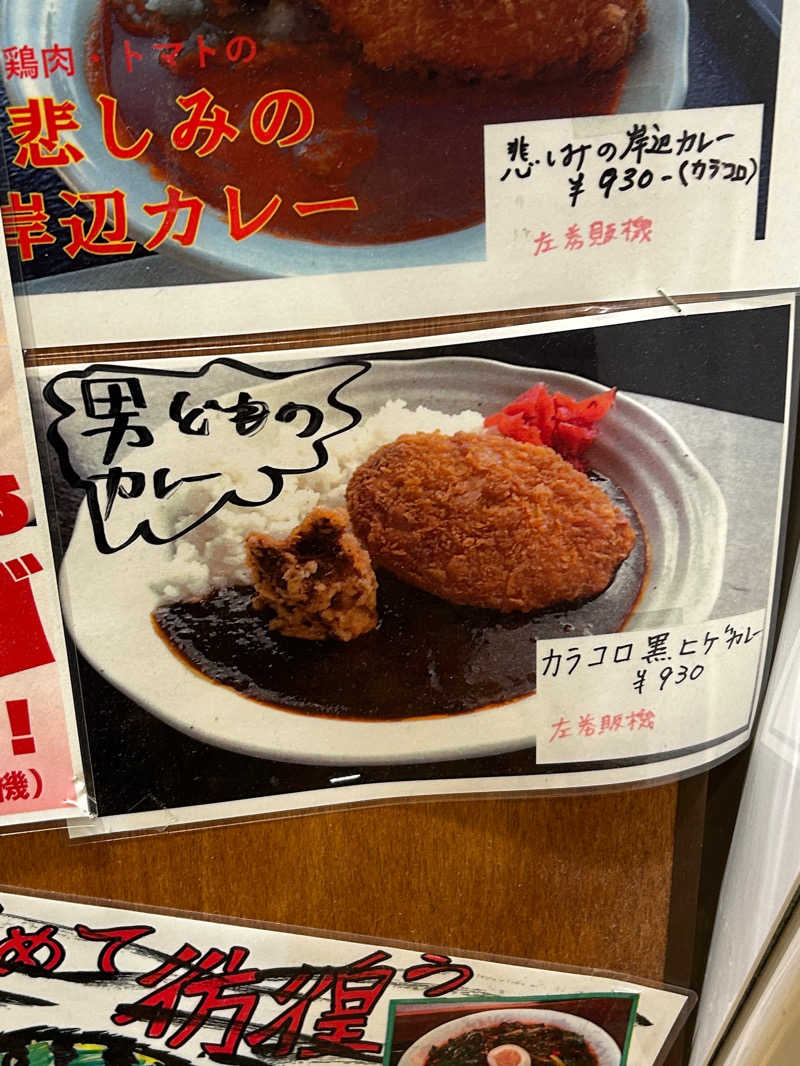 鶏肉・トマトの
悲しみの
岸辺カレー
悲しみの岸辺カレー
¥930-(カラコロ)
左券販機
男どもの
カレー
カラコロ黒ヒゲカレー
¥930
左券販機
!
機)
めて彷徨う